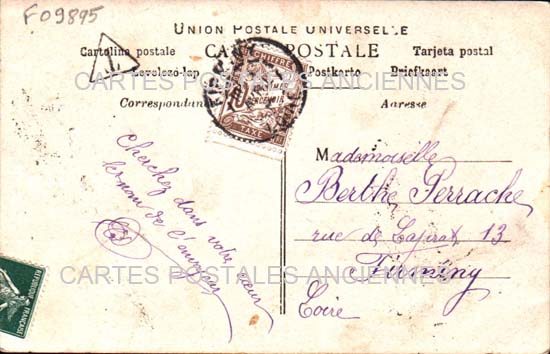 F09895
UNION POSTALE UNIVERSELLE
Cartolina postale CARTE POSTALE Tarjeta postal
Levelező-lap Postkarto Briefkaart
T
CHIFFRE
10 CENTIMES
TAXE
Correspondance Adresse
CARTES POSTALES ANCIENNES
Cherchez dans votre cœur
le nom de l'envoyeur
Mademoiselle
Berthe Perrache
rue de Lajirat 13
Firminy
Loire
CARTES POSTALES ANCIENNES
REPUBLIQUE FRANÇAISE
5